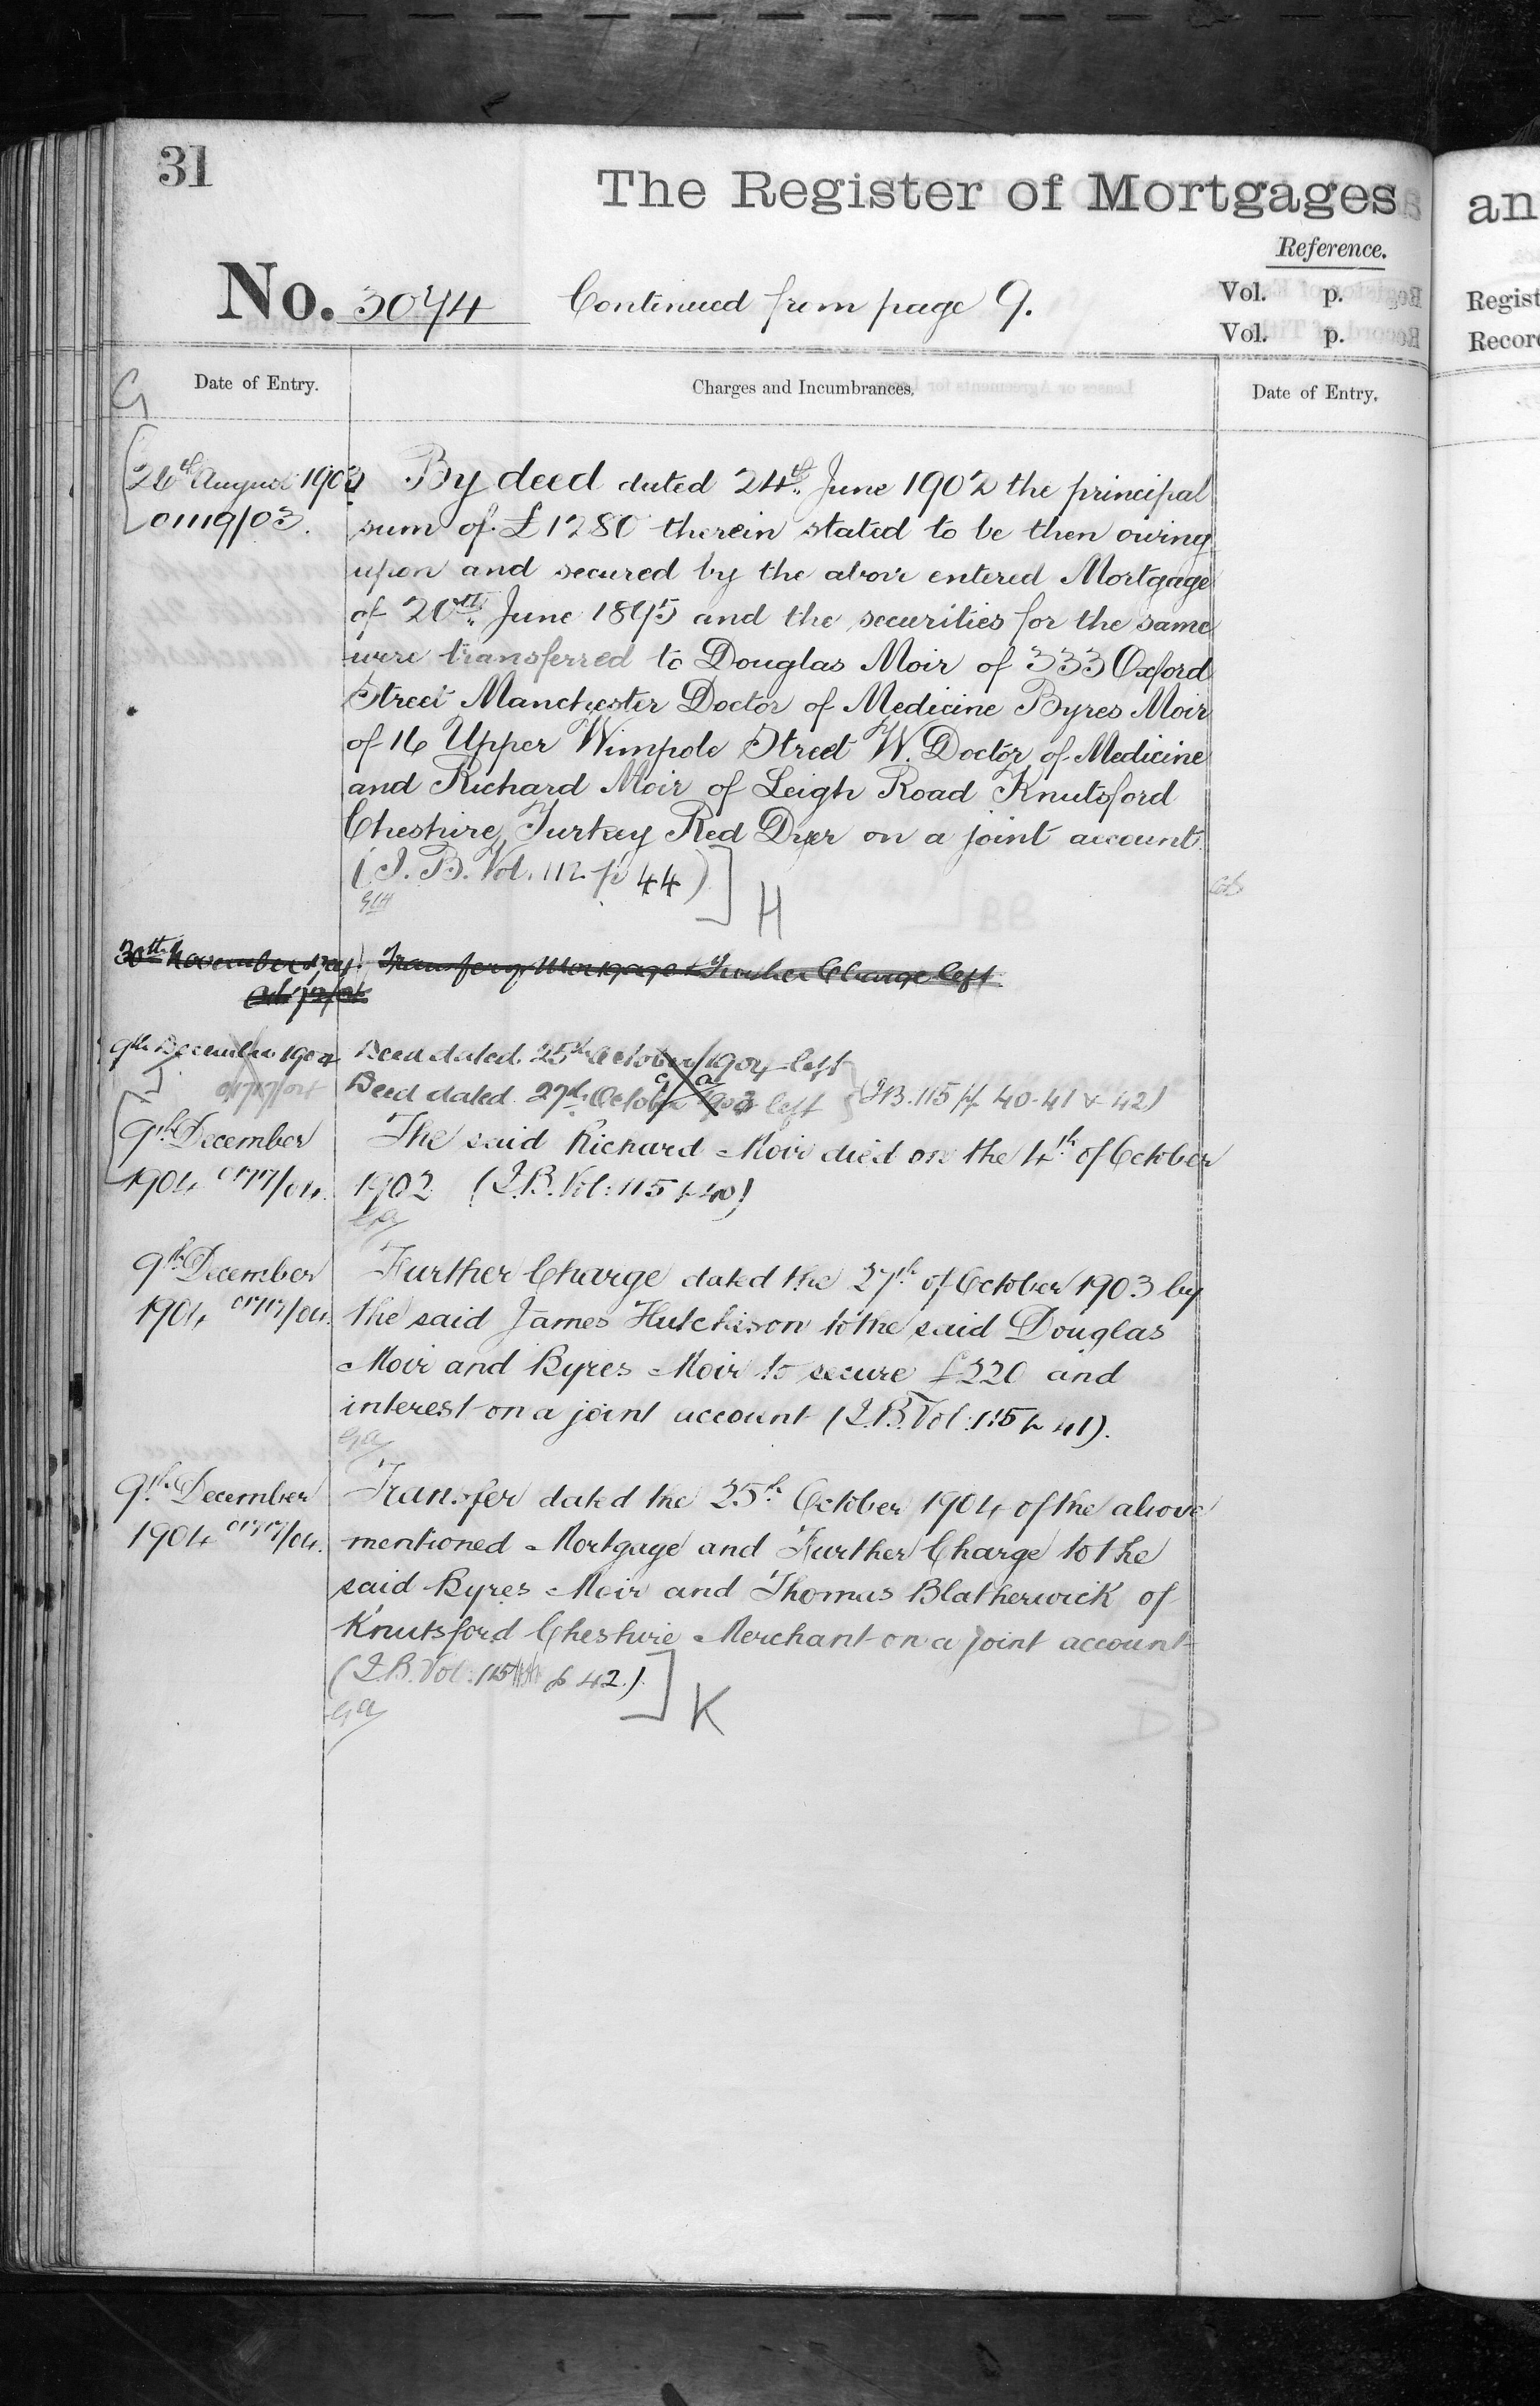 31
The Register of Mortgages
an
Reference.
No. 3074 Continued from page 9.
Vol. p.
Vol. p.
Regist
Recor
G
Date of Entry.
Charges and Incumbrances.
Date of Entry.
26th August 1903
01119/03.
By deed dated 24th June 1902 the principal
sum of £1280 therein stated to be then owing
upon and secured by the above entered Mortgage
of 20th June 1895 and the securities for the same
were transferred to Douglas Moir of 333 Oxford
Street Manchester Doctor of Medicine Byres Moir
of 16 Upper Wimpole Street W. Doctor of Medicine
and Richard Moir of Leigh Road Knutsford
Cheshire, Turkey Red Dyer on a joint account.
(I. B. Vol. 112 p 44)
H
30th November
Transfer of Mortgage & Further Charge left.
9th December 1904
Deed dated 25th October 1904 left
Deed dated 27th October 1903 left
(I.B. 115 pp 40-41 & 42)
J
9th December
1904 01717/04.
The said Richard Moir died on the 4th of October
1902 (I.B. Vol: 115 p 40)
Ga
9th December
1904 01717/04.
Further Charge dated the 27th of October 1903 by
the said James Hutchison to the said Douglas
Moir and Byres Moir to secure £220 and
interest on a joint account (I.B. Vol: 115 p 41).
Ga
9th December
1904 01717/04.
Transfer dated the 25th October 1904 of the above
mentioned Mortgage and Further Charge to the
said Byres Moir and Thomas Blatherwick of
Knutsford Cheshire Merchant on a joint account
(I.B. Vol: 115 p 42.)
K
Ga